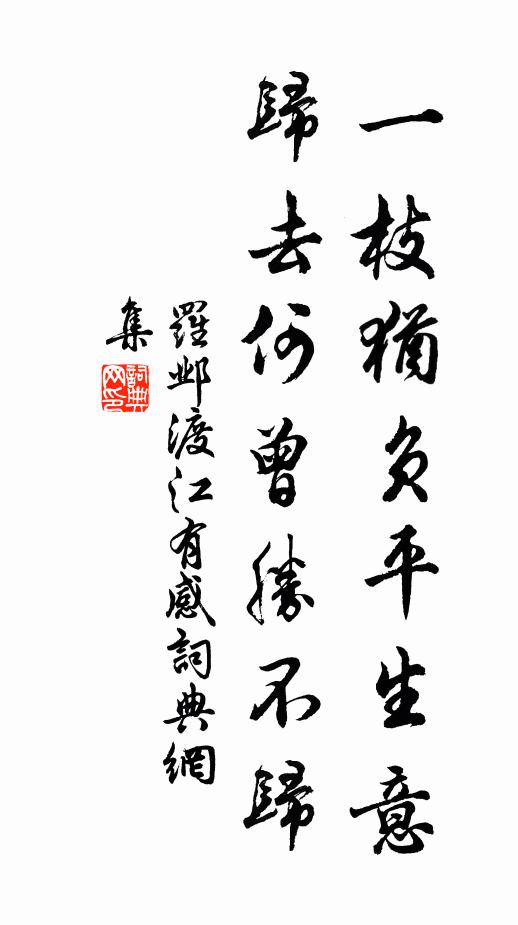 一枝猶負平生意
歸去何曾勝不歸
羅鄴渡江有感詞典網
集
詞典
网印